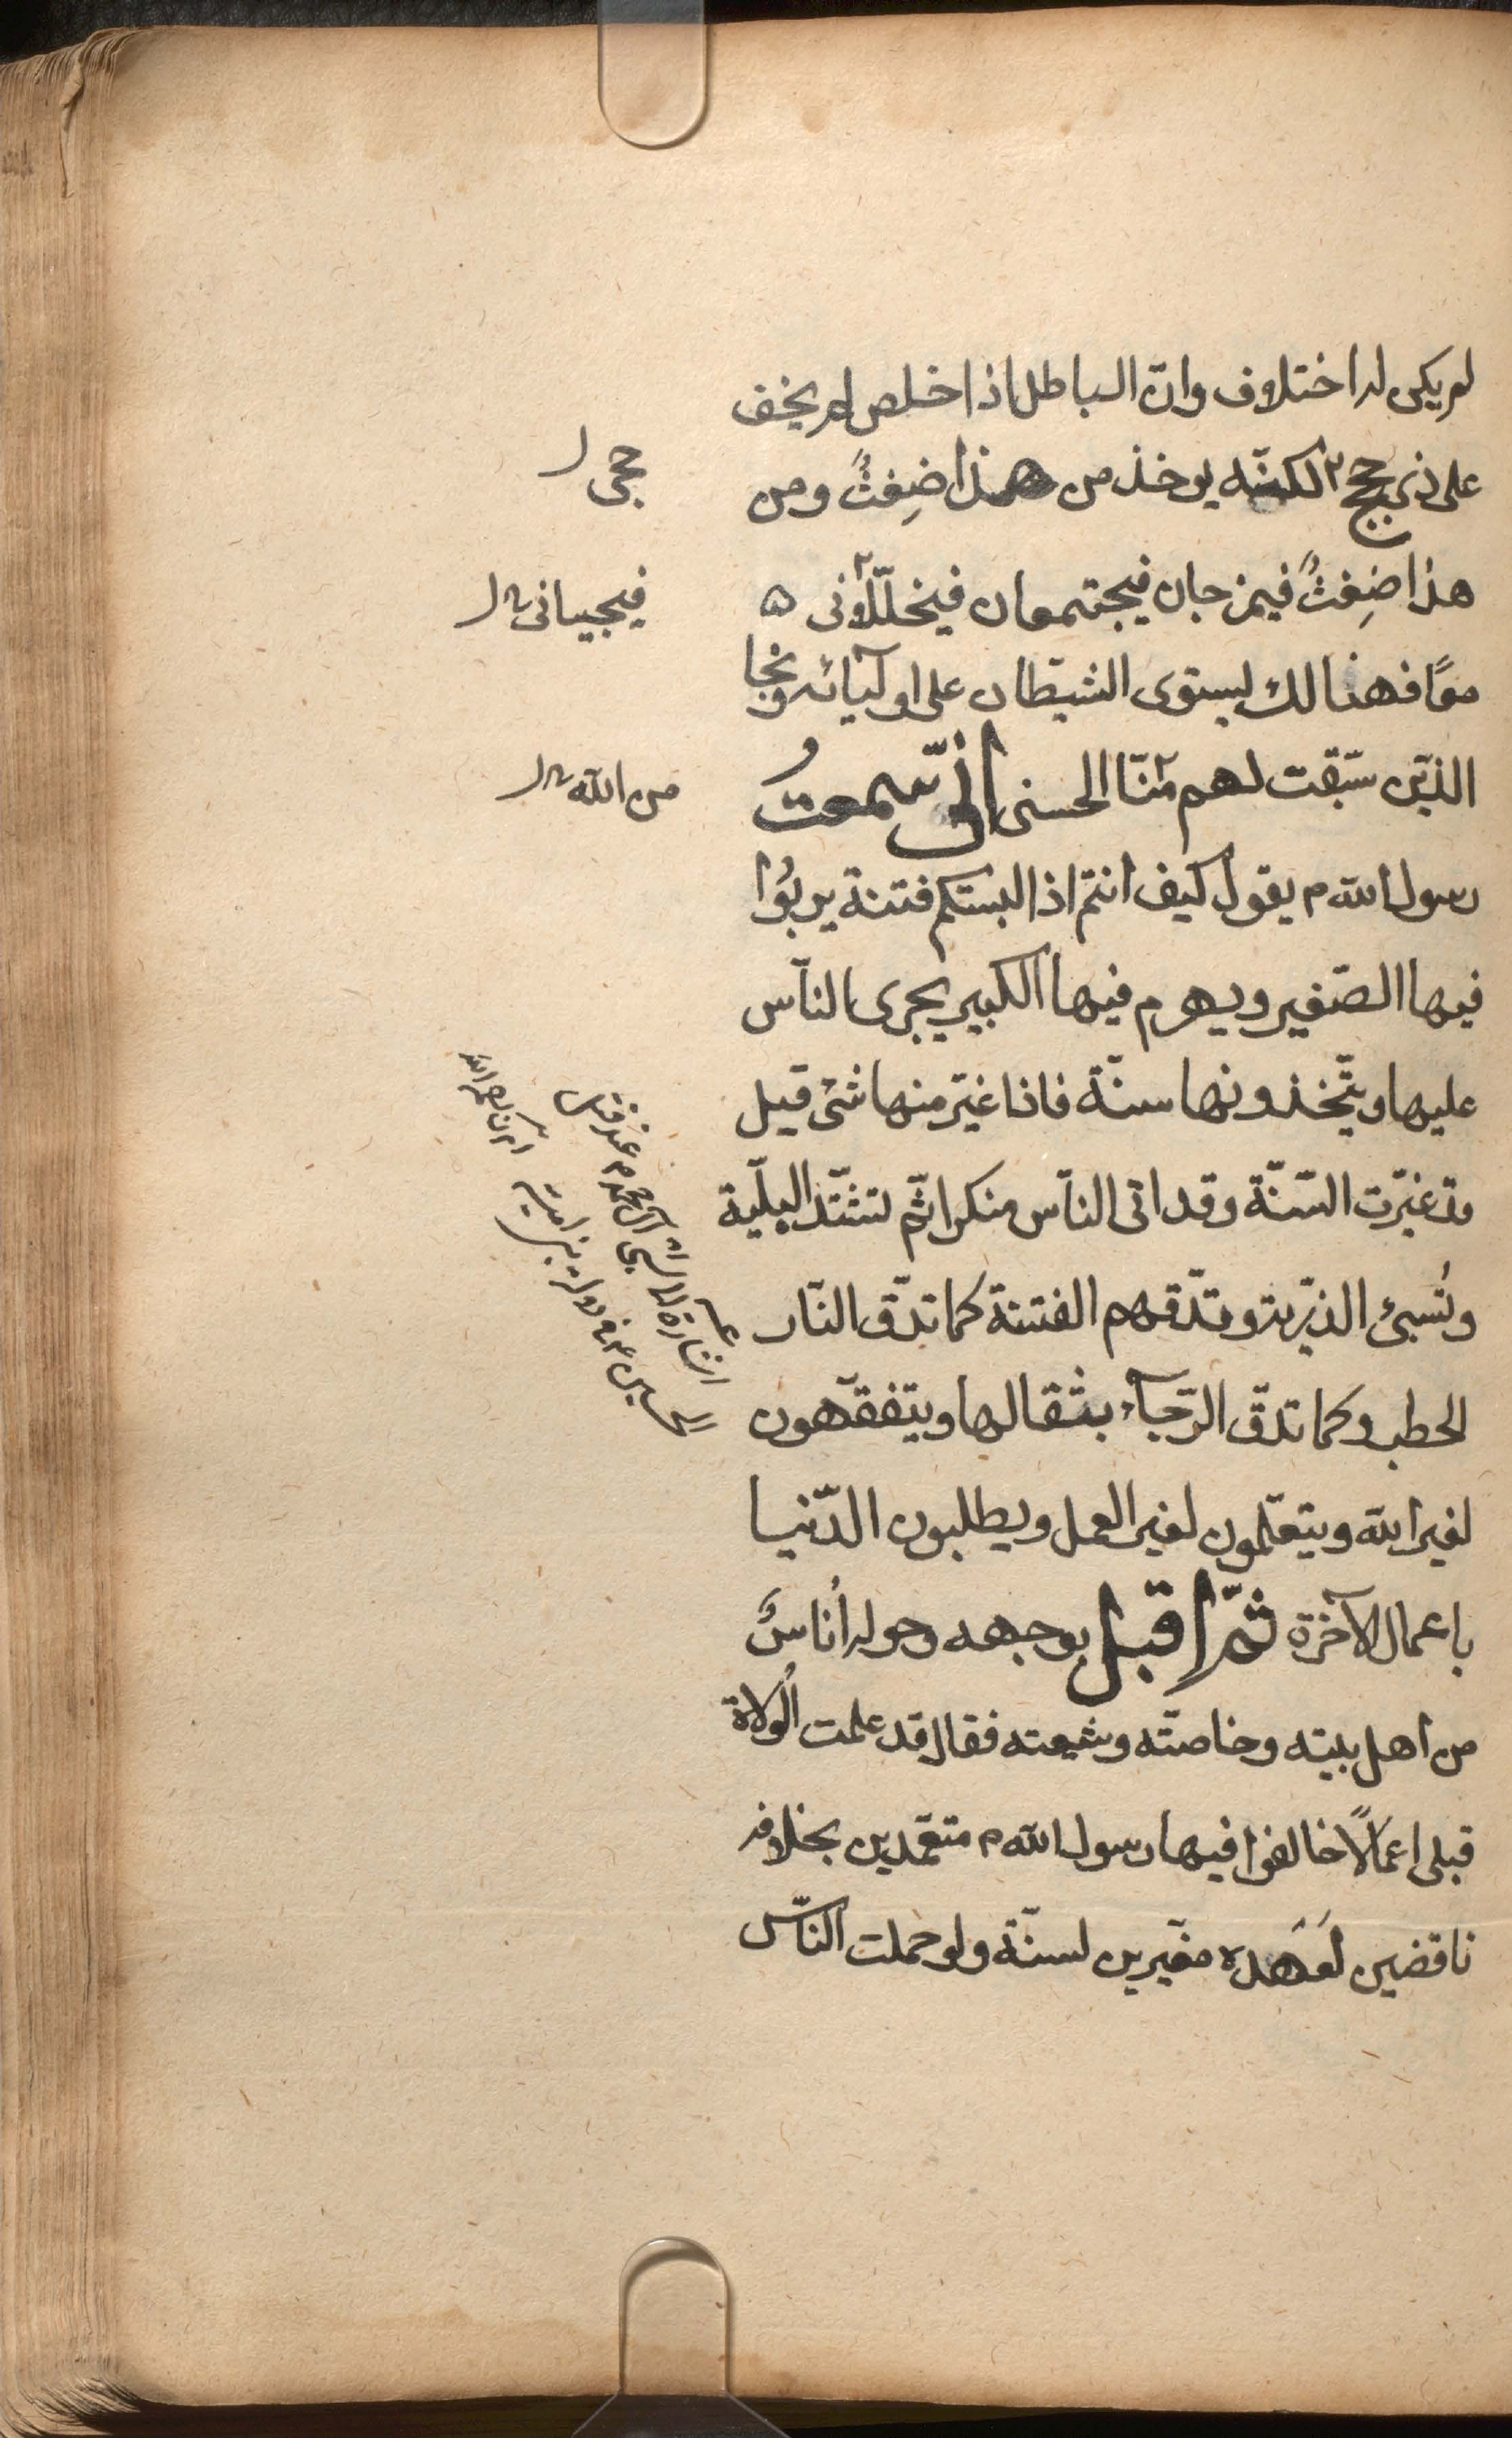 لم يكن له اختلاف وانّ الباطل اذا خلص لم يخف
على ذى حجج لكنّه يوخذ من هذا ضِغثٌ ومن
هذا ضِغثٌ فيمزجان فيجتمعان فيخلّلونى ه
معًا فهنالك يستوى الشيطان على اوليائه ونجا
الذين سبقت لهم منّا الحسنى انّى سمعتُ
رسول الله م يقول كيف انتم اذا البستكم فتنة يربُوا
فيها الصّغير ويهرم فيها الكبير يجرى الناس
عليها ويتّخذونها سنّة فاذا غيّر منها شئ قيل
قد غيّرت السّنّة وقد اتى الناس منكرا ثم تشتدّ البليّة
وتُسبئ الذرّية وتدّقهم الفتنة كما تدّق النّار
الحطب وكما تدقّ الرّحآء بثقالها ويتفقّهون
لغير الله ويتعلّمون لغير العمل ويطلبون الدّنيا
باعمال الآخرة ثمّ اقبل بوجهه وحوله أُناسٌ
من اهل بيته وخاصّته وشيعته فقال قد علمت الُولاة
قبلى اعمالًا خالفوا فيها رسول الله م متعمّدين بخلافه
ناقضين لعَهَده مغيّرين لسنّة ولو حملت النّاس
حجى ل
فيجيبانى ل
من الله ل